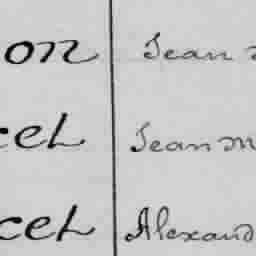 on Jean
cel Jean M
cel Alexand